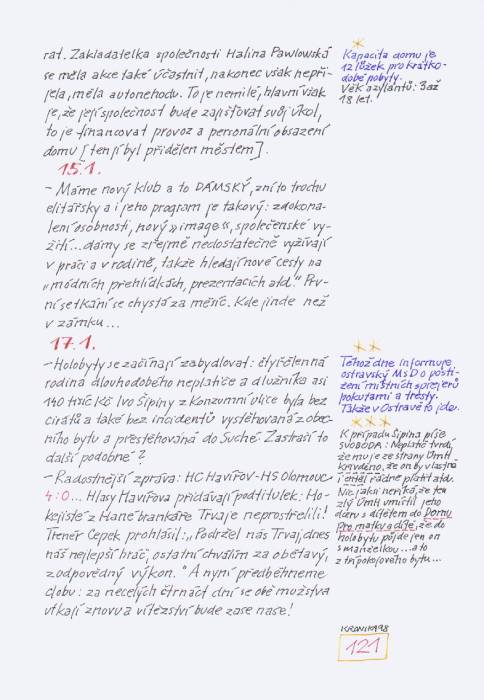 rat. Zakladatelka společnosti Halina Pawlowská
se měla akce také účastnit, nakonec však nepři-
jela, měla autonehodu. To je nemilé, hlavní však
je, že její společnost bude zajišťovat svůj úkol,
to je financovat provoz a personální obsazení
domu [ten jí byl přidělen městem].
15.1.
- Máme nový klub a to DÁMSKÝ, zní to trochu
elitářsky a i jeho program je takový: zdokona-
lení osobnosti, nový »image«, společenské vy-
žití... dámy se zřejmě nedostatečně vyžívají
v práci a v rodině, takže hledají nové cesty na
"módních přehlídkách, prezentacích atd." Prv-
ní setkání se chystá za měsíc. Kde jinde než
v zámku...
17.1.
- Holobyty se začínají zabydlovat: čtyřčlenná
rodina dlouhodobého neplatiče a dlužníka asi
140 tisíc Kč Ivo Šipiny z Konzumní ulice byla bez
cirátů a také bez incidentů vystěhována z obec-
ního bytu a přestěhována do Suché. Zastraší to
další podobné?
- Radostnější zpráva: HC Havířov - HS Olomouc
4:0... Hlasy Havířova přidávají podtitulek: Ho-
kejisté z Hané brankáře Trvaje neprostřelili!
Trenér Cepek prohlásil: "Podržel nás Trvaj, dnes
náš nejlepší hráč, ostatní chválím za obětavý,
zodpovědný výkon." A nyní předběhneme
dobu: za necelých čtrnáct dní se obě mužstva
utkají znovu a vítězství bude zase naše!
Kapacita domu je
12 lůžek pro krátko-
dobé pobyty.
Věk azylantů: 3 až
18 let.
Téhož dne informuje
ostravský MsD o posti-
žení místních sprejerů
pokutami a tresty.
Takže v Ostravě to jde.
K případu Šipina píše
SVOBODA: Neplatič tvrdí,
že mu je ze strany ÚMH
křivděno, že on by vlastně
i chtěl řádně platit atd.
Nic jaksi neříká, že ten
zlý ÚMH umístil jeho
dceru s dítětem do Domu
pro matku a dítě, že do
holobytu půjde jen on
s manželkou... a to
z třípokojového bytu...
KRONIKA 98
121